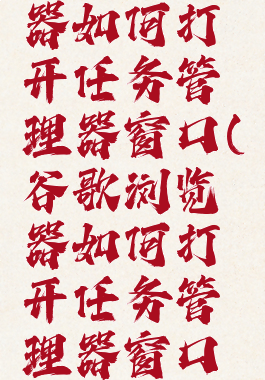 器如何打
开任务管
理器窗口(
谷歌浏览
器如何打
开任务管
理器窗口